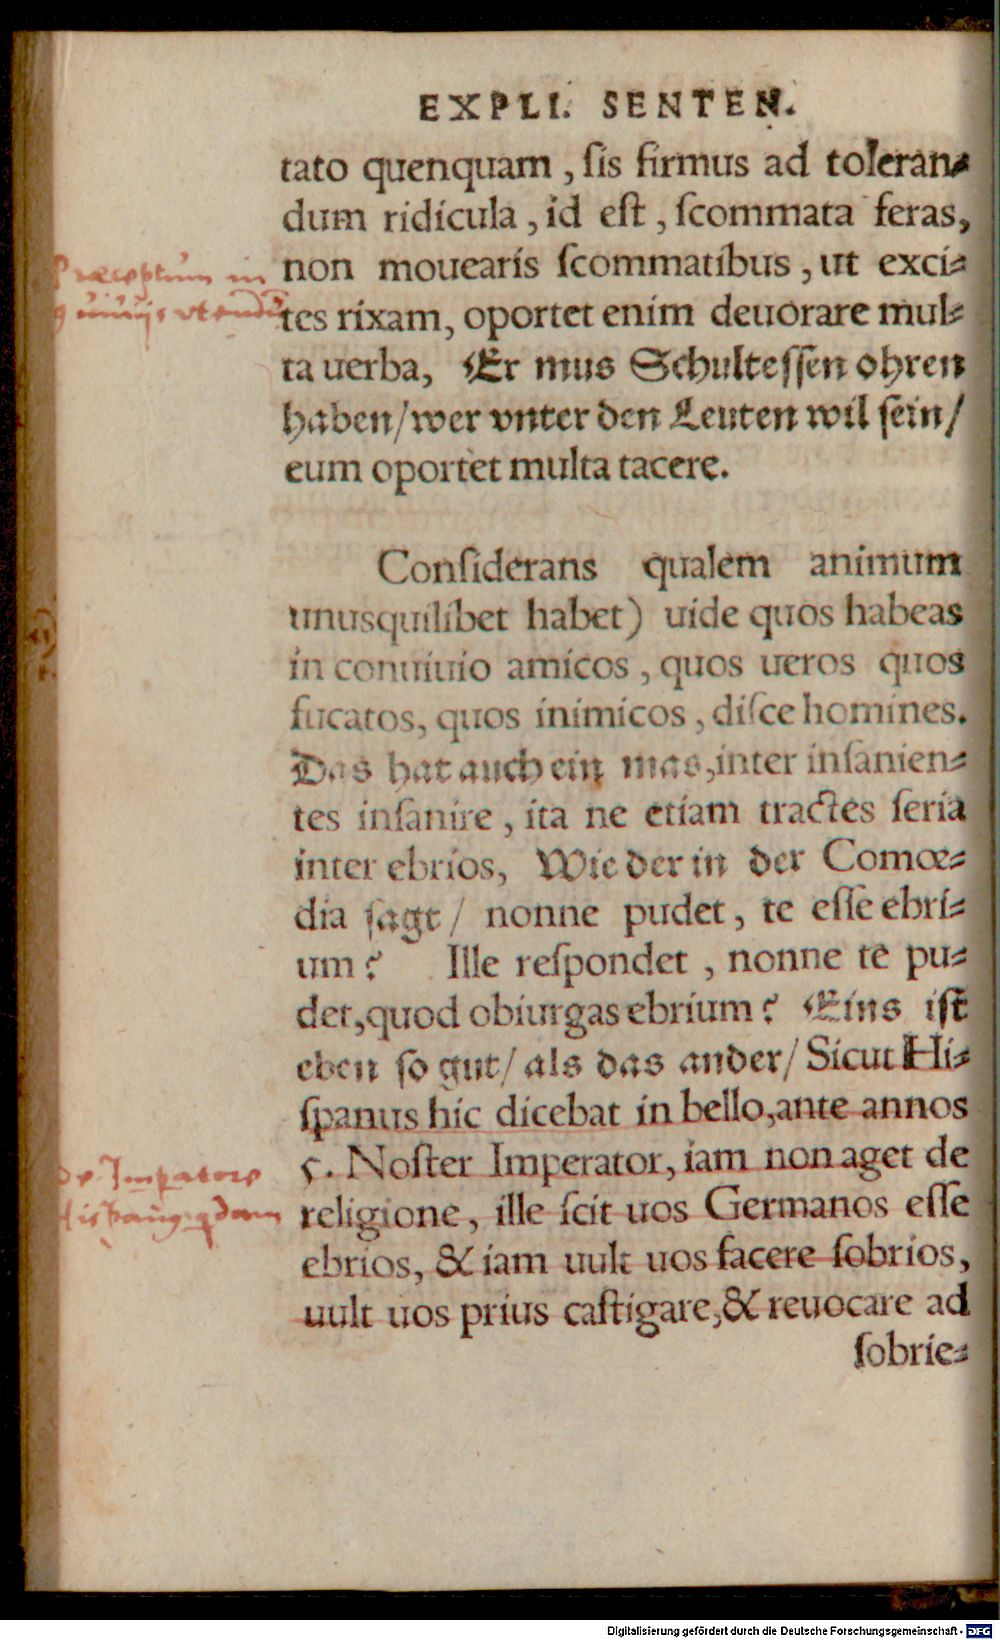 EXPLI. SENTEN.
tato quenquam, ſis firmus ad toleran⸗
dum ridicula, id eſt, ſcommata feras,
non mouearis ſcommatibus, ut exci⸗
tes rixam, oportet enim deuorare mul⸗
ta uerba, Er mus Schulteſſen ohren
haben/wer vnter den Leuten wil ſein/
eum oportet multa tacere.
Conſiderans qualem animum
unusquilibet habet) uide quos habeas
in conuiuio amicos, quos ueros quos
fucatos, quos inimicos, diſce homines.
Das hat auch ein mas, inter inſanien⸗
tes inſanire, ita ne etiam tractes ſeria
inter ebrios, Wie der in der Comœ⸗
dia ſagt/ nonne pudet, te eſſe ebri⸗
um? Ille reſpondet, nonne te pu⸗
det, quod obiurgas ebrium? Eins iſt
eben ſo gut/ als das ander/ Sicut Hi⸗
ſpanus hic dicebat in bello, ante annos
5. Noſter Imperator, iam non aget de
religione, ille ſcit uos Germanos eſſe
ebrios, & iam uult uos facere ſobrios,
uult uos prius caſtigare, & reuocare ad
ſobrie⸗
Præceptum in
de Imperatore
Digitalisierung gefördert durch die Deutsche Forschungsgemeinschaft - DFG